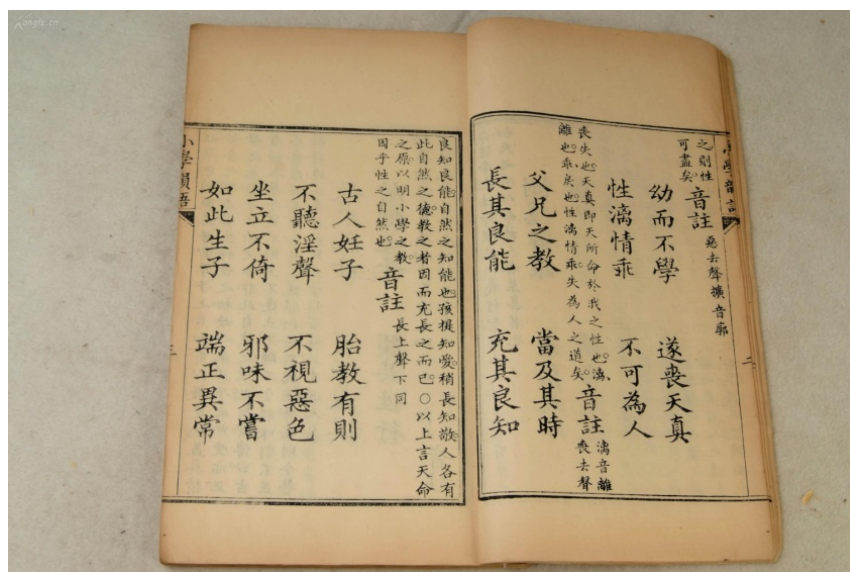 小學韻語
二
之則性
可盡矣
音註
惡去聲擴音廓
幼而不學 遂喪天真
性漓情乖 不可為人
喪失也天真即天所命於我之性也漓
離也乖戾也性漓情乖失為人之道矣
音註
漓音離
喪去聲
父兄之教 當及其時
長其良能 充其良知
良知良能自然之知能也孩提知愛稍長知敬人各有
此自然之德教之者因而充長之而已○以上言天命
之原以明小學之教
因乎性之自然也
音註
長上聲下同
古人妊子 胎教有則
不聽淫聲 不視惡色
坐立不倚 邪味不嘗
如此生子 端正異常
小學韻語
三